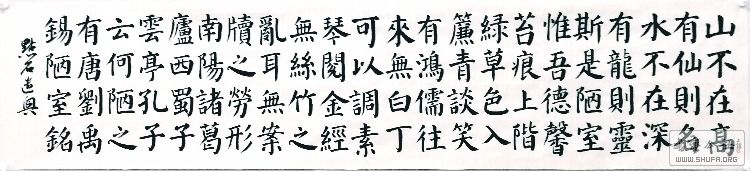 山不在高
有仙則名
水不在深
有龍則靈
斯是陋室
惟吾德馨
苔痕上階
綠草色入
簾青談笑
有鴻儒往
來無白丁
可以調素
琴閱金經
無絲竹之
亂耳無案
牘之勞形
南陽諸葛
廬西蜀子
雲亭孔子
云何陋之
有唐劉禹
錫陋室銘
點石遣興
WWW.SHUFA.ORG